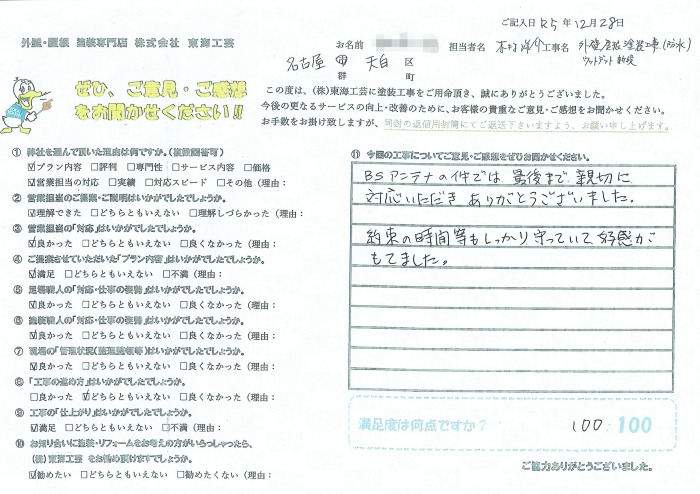 ご記入日 R5年12月28日
外壁・屋根 塗装専門店 株式会社 東海工芸
お名前 担当者名 工事名 外壁屋根塗装工事(防水)
名古屋 市 天白 区
郡 町
ぜひ、ご意見・ご感想
をお聞かせください!!
この度は、(株)東海工芸に塗装工事をご用命頂き、誠にありがとうございました。
今後の更なるサービスの向上・改善のために、お客様の貴重なご意見・ご感想をお聞かせください。
お手数をお掛け致しますが、同封の返信用封筒にてご返送下さいますよう、お願い申し上げます。
① 弊社を選んで頂いた理由は何ですか。(複数回答可)
☑プラン内容 □評判 □専門性 □サービス内容 □価格
☑営業担当の対応 □実績 □対応スピード □その他(理由:
② 営業担当のご提案・ご説明はいかがでしたでしょうか。
☑理解できた □どちらともいえない □理解しづらかった(理由:
③ 営業担当の「対応」はいかがでしたでしょうか。
☑良かった □どちらともいえない □良くなかった(理由:
④ ご提案させていただいた「プラン内容」はいかがでしたでしょうか。
☑満足 □どちらともいえない □不満(理由:
⑤ 足場職人の「対応・仕事の姿勢」はいかがでしたでしょうか。
☑良かった □どちらともいえない □良くなかった(理由:
⑥ 塗装職人の「対応・仕事の姿勢」はいかがでしたでしょうか。
☑良かった □どちらともいえない □良くなかった(理由:
⑦ 現場の「管理状況(整理整頓等)はいかがでしたでしょうか。
☑良かった □どちらともいえない □良くなかった(理由:
⑧ 「工事の進め方」はいかがでしたでしょうか。
□良かった ☑どちらともいえない □良くなかった(理由:
⑨ 工事の「仕上がり」はいかがでしたでしょうか。
☑満足 □どちらともいえない □不満(理由:
⑩ お知り合いに塗装・リフォームをお考えの方がいらっしゃったら、
(株)東海工芸 をお勧め頂けますでしょうか。
☑勧めたい □どちらともいえない □勧めたくない(理由:
⑪ 今回の工事についてご意見・ご感想をぜひお聞かせください。
BSアンテナの件では最後まで親切に
対応いただきありがとうございました。
約束の時間等もしっかり守っていて好感が
もてました。
満足度は何点ですか? 100/100
ご協力ありがとうございました。